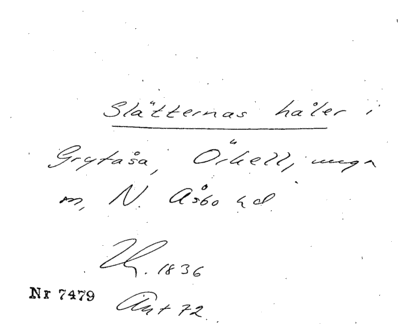 Slätternas håler i
Grytåsa, Örkell, unga
m, N. Åsbo hd.
1836
Nr 7479
Ant 72.